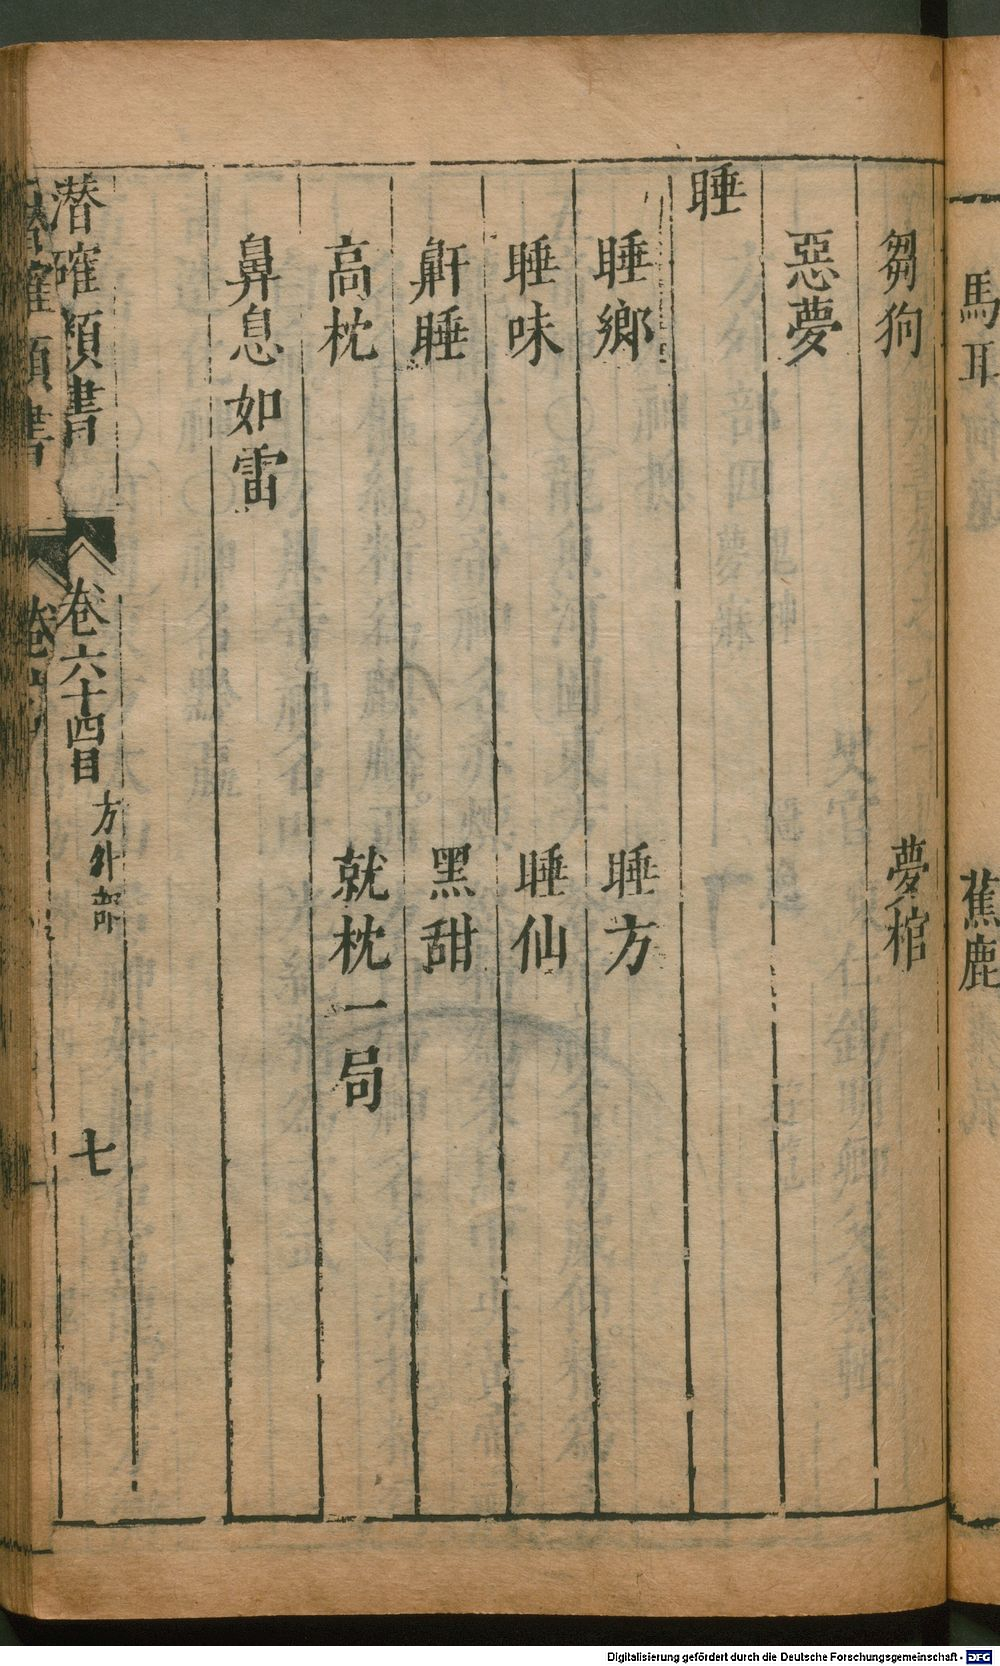 馬耳
蕉鹿
芻狗
夢棺
惡夢
睡
睡鄉
睡方
睡味
睡仙
鼾睡
黑甜
高枕
就枕一局
鼻息如雷
潛確類書
卷六十四目
方外部
七
潛確類書
Digitalisierung gefördert durch die Deutsche Forschungsgemeinschaft - DFG